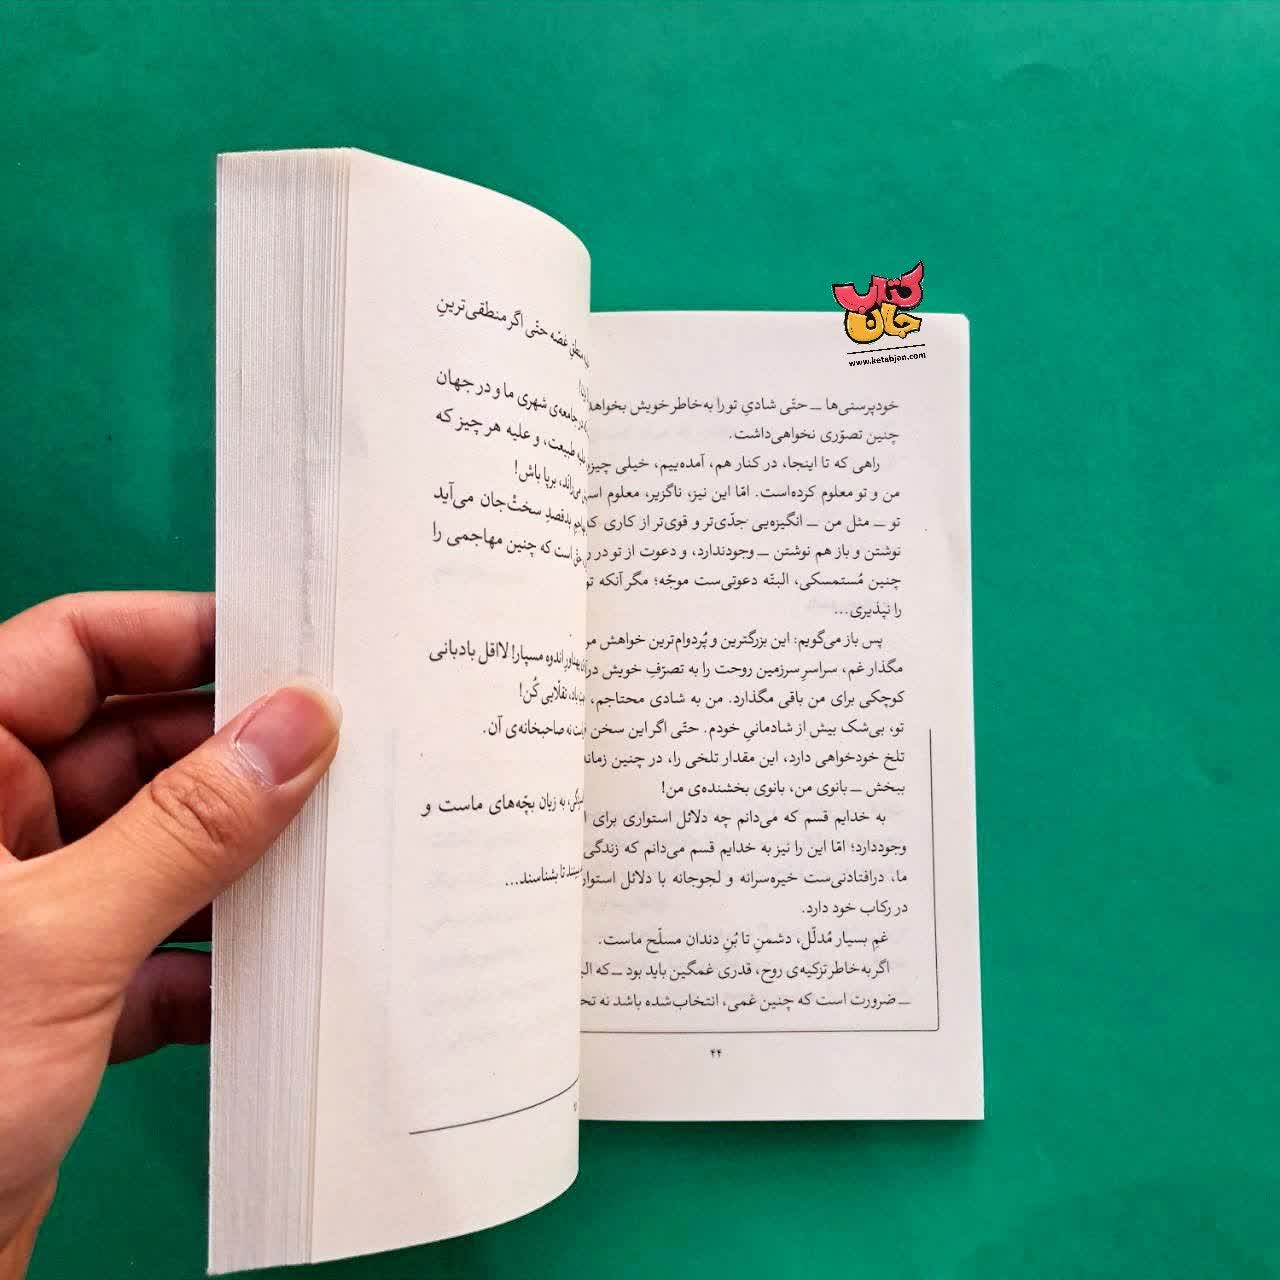 کتاب
جان
www.ketabjan.com
خودپرستی‌ها ــ حتّی شادیِ تو را به‌خاطر خویش بخواهد
چنین تصوّری نخواهی‌داشت.
راهی که تا اینجا، در کنار هم، آمده‌ییم، خیلی
من و تو معلوم کرده‌است. امّا این نیز، ناگزیر، معلوم
تو ــ مثل من ــ انگیزه‌یی جدّی‌تر و قوی‌تر از کاری
نوشتن و باز هم نوشتن ــ وجودندارد، و دعوت از تو در
چنین مُستمسکی، البتّه دعوتی‌ست موجّه؛ مگر آنکه
را نپذیری...
پس باز می‌گویم: این بزرگترین و پُردوام‌ترین خواهش
مگذار غم، سراسرِ سرزمین روحت را به تصرّفِ خویش
کوچکی برای من باقی مگذارد. من به شادی محتاجم،
تو، بی‌شک بیش از شادمانیِ خودم. حتّی اگر این سخن
تلخ خودخواهی دارد، این مقدار تلخی را، در چنین
ببخش ــ بانوی من، بانوی بخشنده‌ی من!
به خدایم قسم که می‌دانم چه دلائل استواری برای
وجوددارد؛ امّا این را نیز به خدایم قسم می‌دانم که زندگی
ما، درافتادنی‌ست خیره‌سرانه و لجوجانه با دلائل
در رکاب خود دارد.
غمِ بسیار مُدلّل، دشمنِ تا بُنِ دندان مسلّح ماست.
اگر به خاطر تزکیه‌ی روح، قدری غمگین باید بود ــ که
ــ ضرورت است که چنین غمی، انتخاب‌شده باشد نه
۴۴
منطقِ غصّه حتّی اگر منطقی‌ترینِ
در جامعه‌ی شهری ما و در جهان
طبیعت، و علیه هر چیز که
برپا باش!
بدقصدِ سختْ‌جان می‌آید
است که چنین مهاجمی را
اندوه مسپار! لااقل بادبانی
تقلّایی کُن!
نه صاحبخانه‌ی آن.
به زیان بچّه‌های ماست و
تا بشناسند...